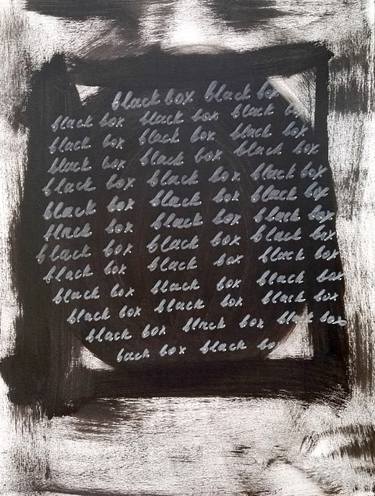 black box black bo
black box black box black box
black box black box black box
black box black box black box
black box black box black box
black box black box black box
black box black box black box
black box black box black box
black box black box black box
black box black box black box
black box black box black box
black box black box black box
black box black box black box
back box black bo